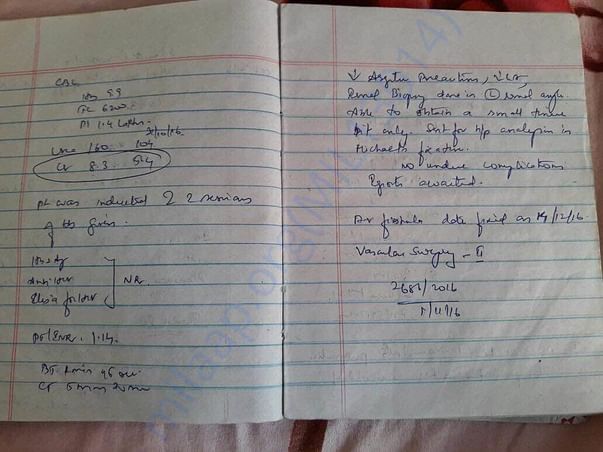 CBC
Hb 9.9
TC 6200
Pt 1.4 Lakhs
Urea 160 104
Cr 8.3 5.4
pt was inducted 2 sessions
of Hd given.
HbsAg
Anti HCV
Elisa for HIV
NR
PT/INR. 1.14
BT 1 min 45 sec
CT 5 min
↓ Aseptic Precautions, ↓ LA,
Renal Biopsy done in (L) renal angle.
Able to obtain a small tissue
bit only. Sent for h/p analysis in
Michael's fixative.
No undue complications
Reports awaited.
Av fistula date fixed as /12/16
Vascular Surgery - II
2681/2016
milaap.org (MIL 14)